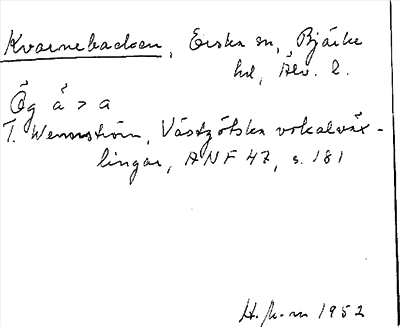 Kvarnebacken, Erska sn, Bjärke
hd, Älv. l.
Ög å > a
T. Wennström, Västgötska vokalväx-
lingar, ANF 47, s. 181
H. k-m 1952